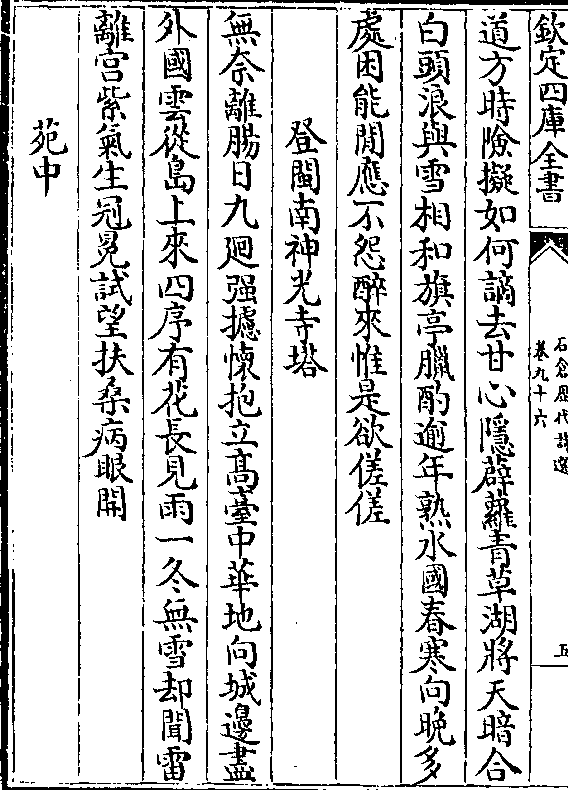 欽定四庫全書
石倉歷代詩選
卷九十六
五
道方時險擬如何謫去甘心隱薜蘿青草湖將天暗合
白頭浪與雪相和旗亭臘酌逾年熟水國春寒向晚多
處困能閒應不怨醉來惟是欲傞傞
登閩南神光寺塔
無奈離腸日九廻强攄懷抱立髙臺中華地向城邊盡
外國雲從島上來四序有花長見雨一冬無雪却聞雷
離宫紫氣生冠冕試望扶桑病眼開
苑中